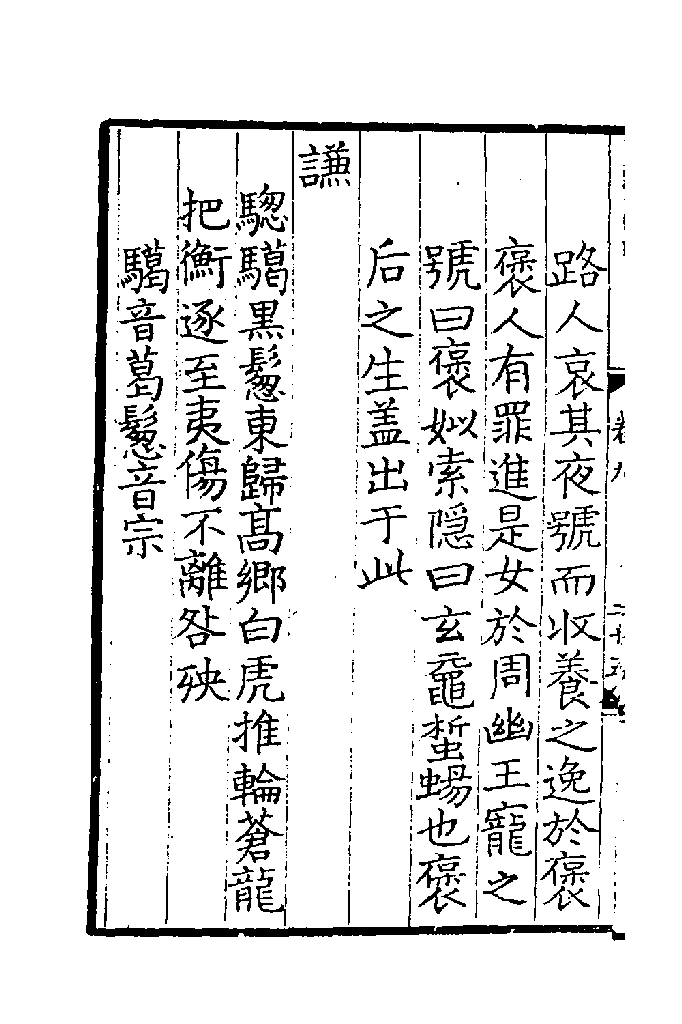 路人哀其夜號而收養之逸於褒
褒人有罪進是女於周幽王寵之
號曰褒姒索隱曰玄黿蜤蜴也褒
后之生蓋出于此
謙
騘騔黑鬉東歸髙鄉白虎推輪蒼龍
把衡逐至夷傷不離咎殃
騔音葛鬉音宗